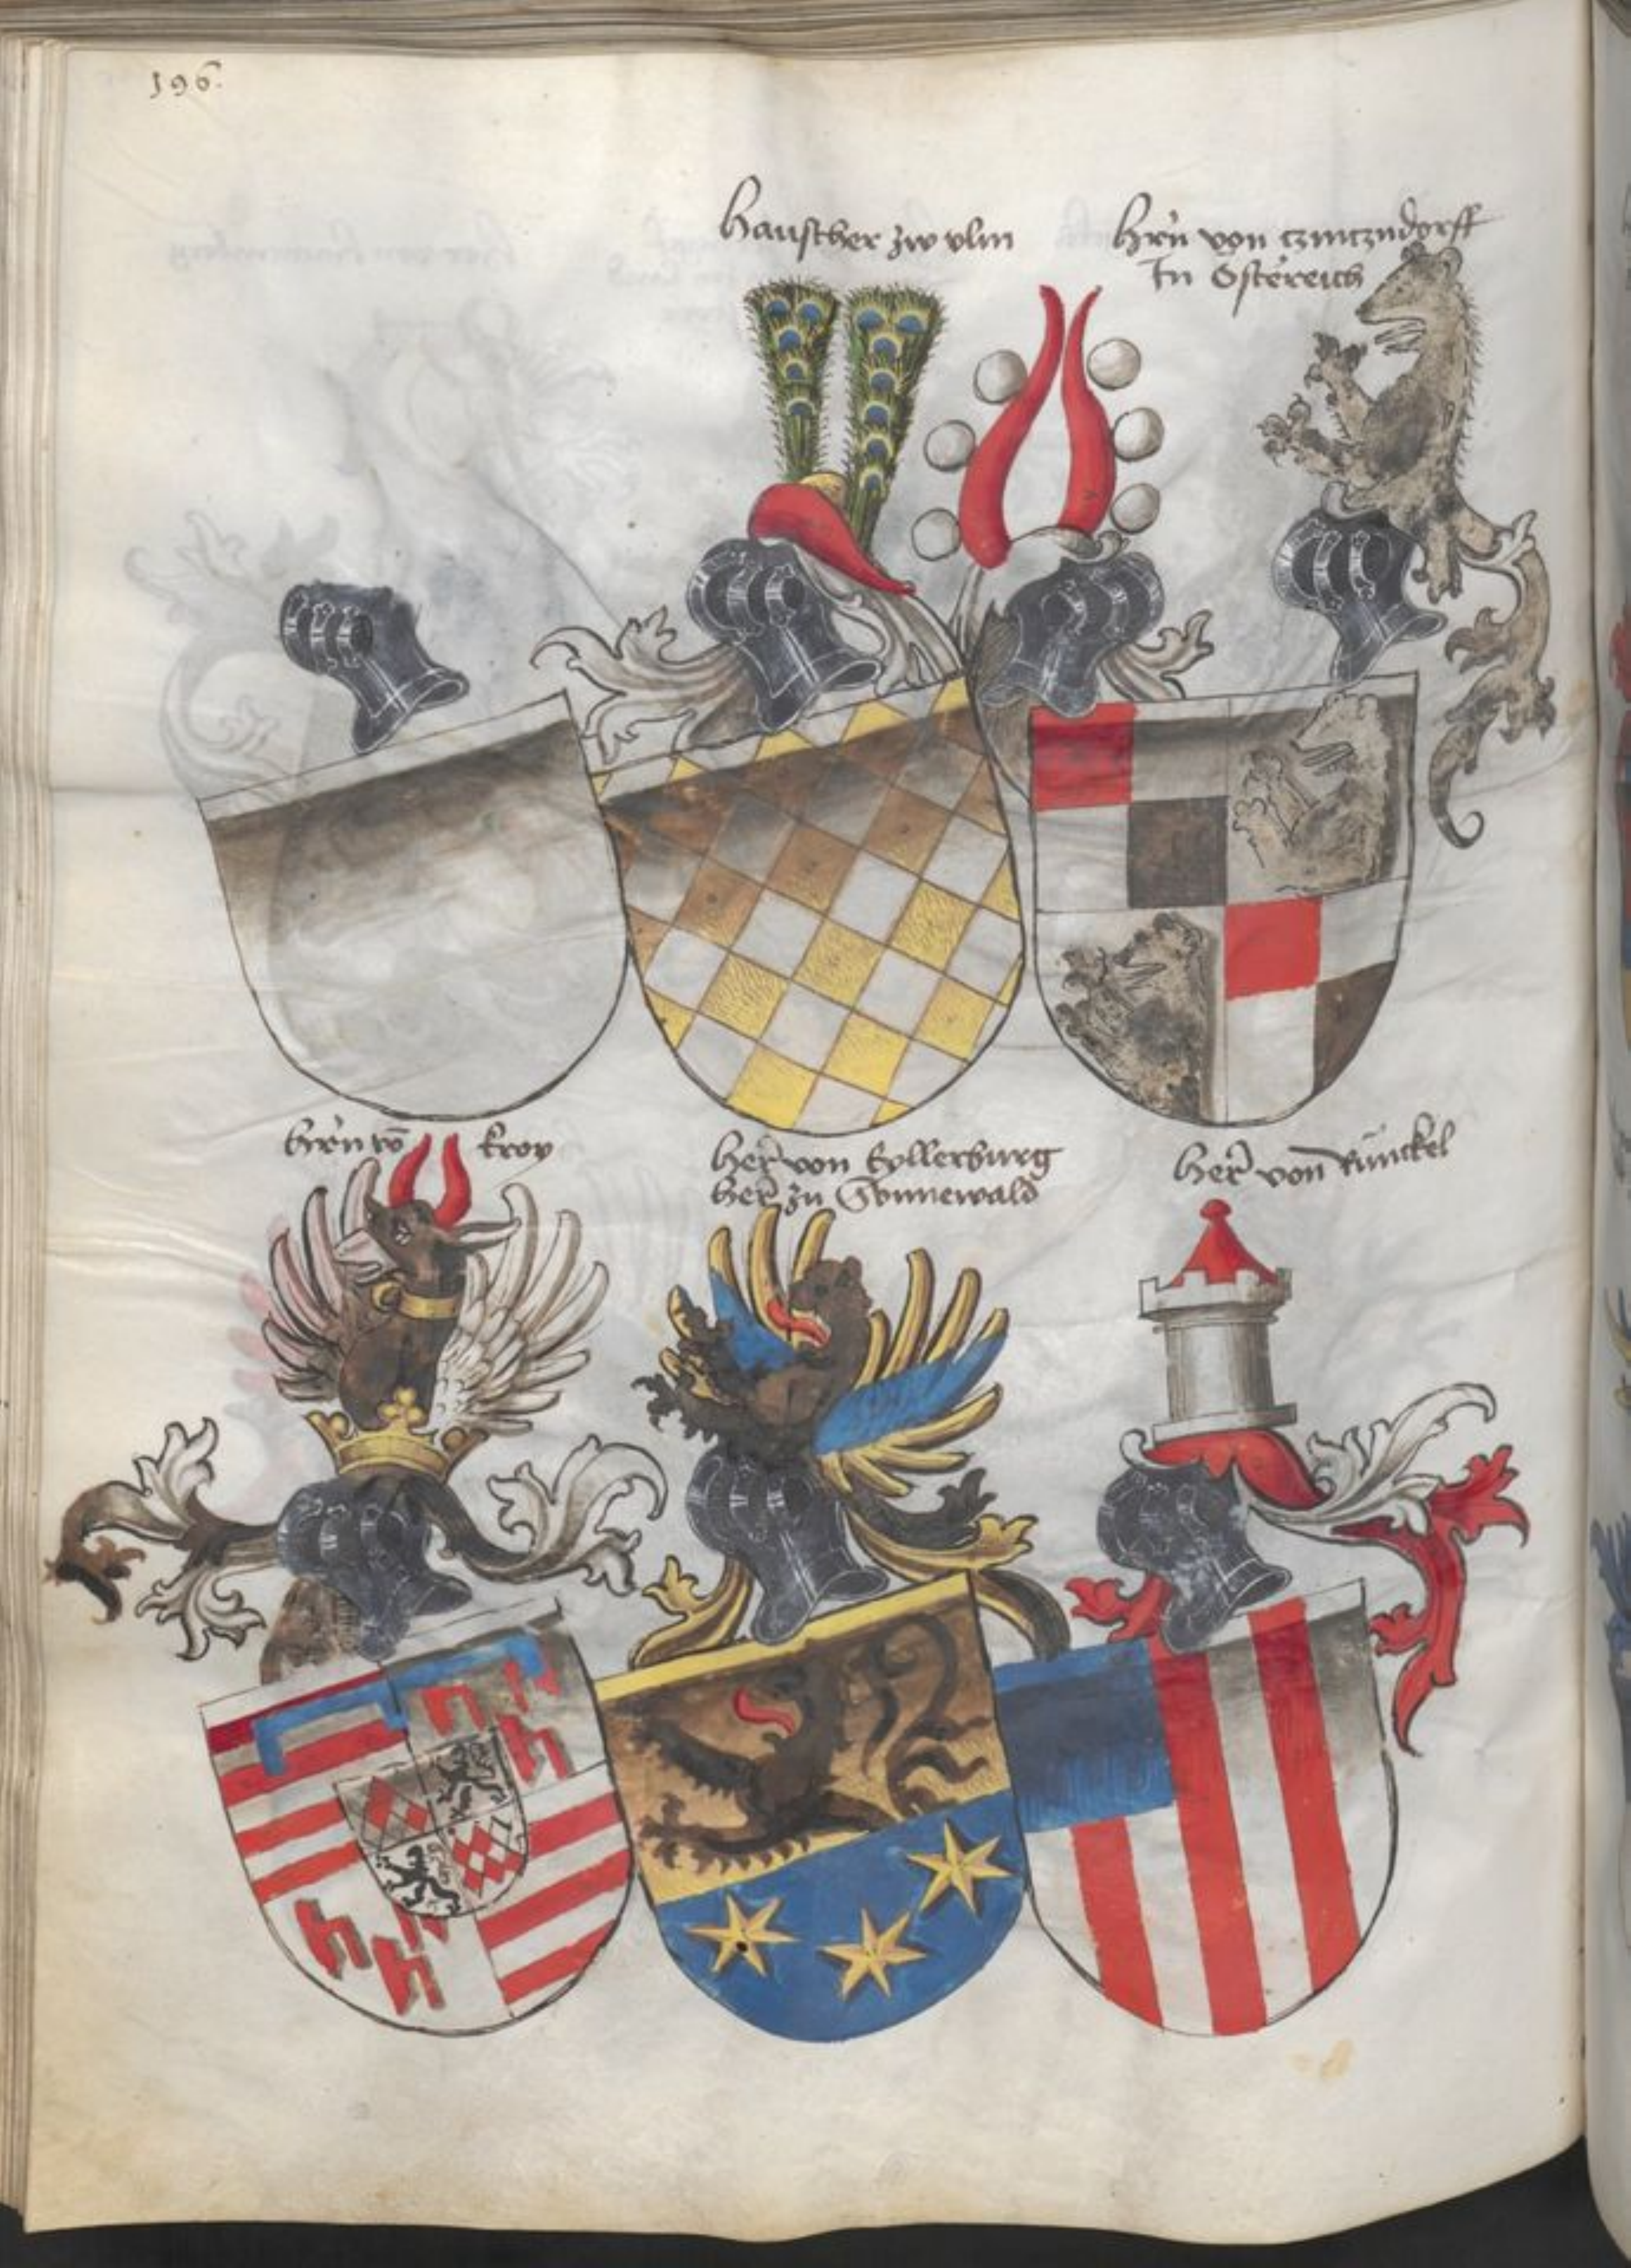 196.
Hauscher zw vlm
Hern von czinczndorff
In Ostereich
Hern võ kroy
Her von Eyllerburg
Her zu Sonnewald
Her von Runckel